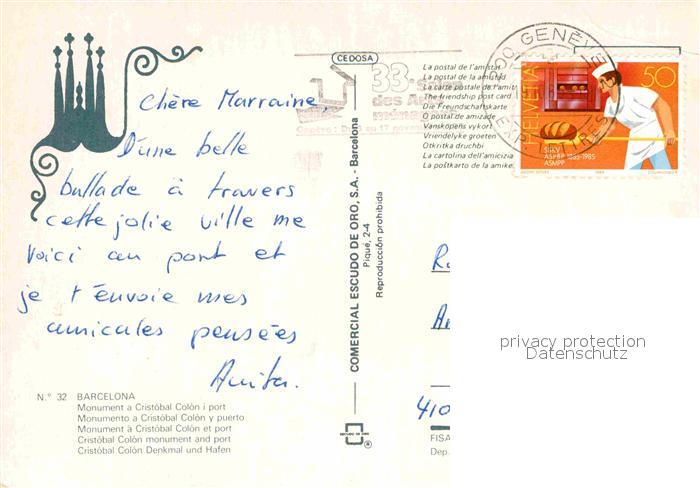 CEDOSA
Chère Marraine,
D'une belle
ballade à travers
cette jolie ville me
voici au port et
je t'envoie mes
amicales pensées
Anita.
N.° 32 BARCELONA
Monument a Cristòbal Colón i port
Monumento a Cristóbal Colón y puerto
Monument à Cristóbal Colón et port
Cristóbal Colón monument and port
Cristóbal Colón Denkmal und Hafen
COMERCIAL ESCUDO DE ORO, S.A. - Barcelona
Piqué, 2-4
Reproducción prohibida
ESCUDO DE ORO
®
33e Salon
des Arts
ménagers
17 novembre
La postal de l'amistat
La postal de la amistad
La carte postale de l'amitié
The friendship post card
Die Freundschaftskarte
O postal de amizade
Vanskapens vykort
Vriendelyke groeten
Otkritka druchbi
La cartolina dell'amicizia
La poŝtkarto de la amikeco
GENÈVE
EXP. LETTRES
HELVETIA
50
SBKV
ASPBP 1885-1985
ASMPP
410
FISA
Dep.
privacy protection
Datenschutz